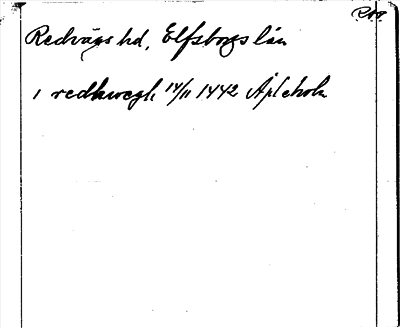 Redvägs hd, Elfsborgs län
i redhwegh 14/11 1442 Apleholm